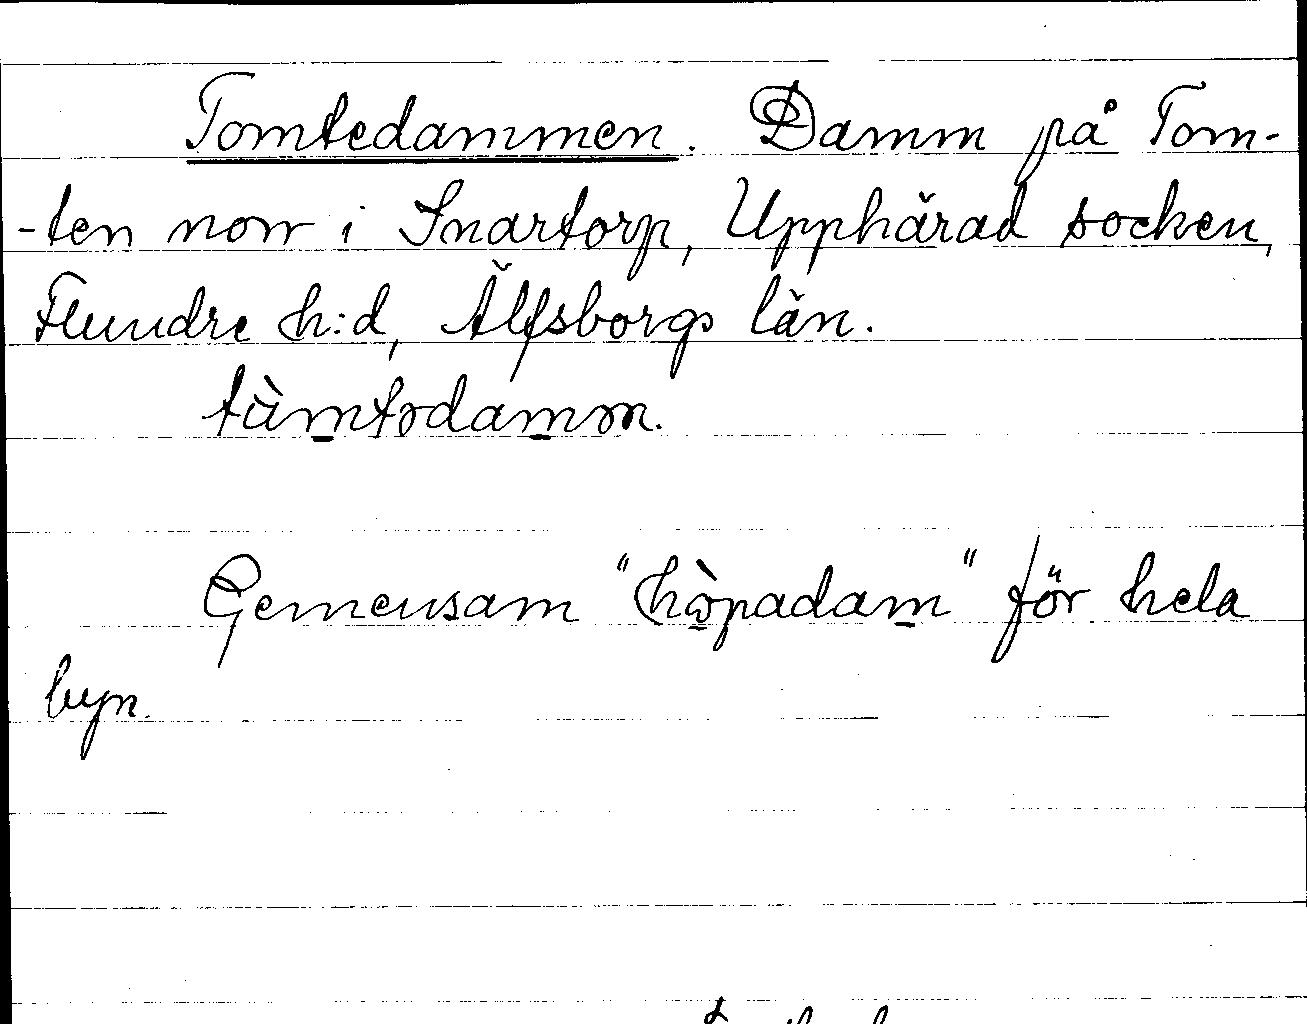 Tomtedammen. Damm på Tom-
-ten norr i Snartorp, Upphärad socken,
Flundre h:d, Älfsborgs län.
tùm̲tədam̲ən.
Gemensam "hòpadam̲" för hela
byn.